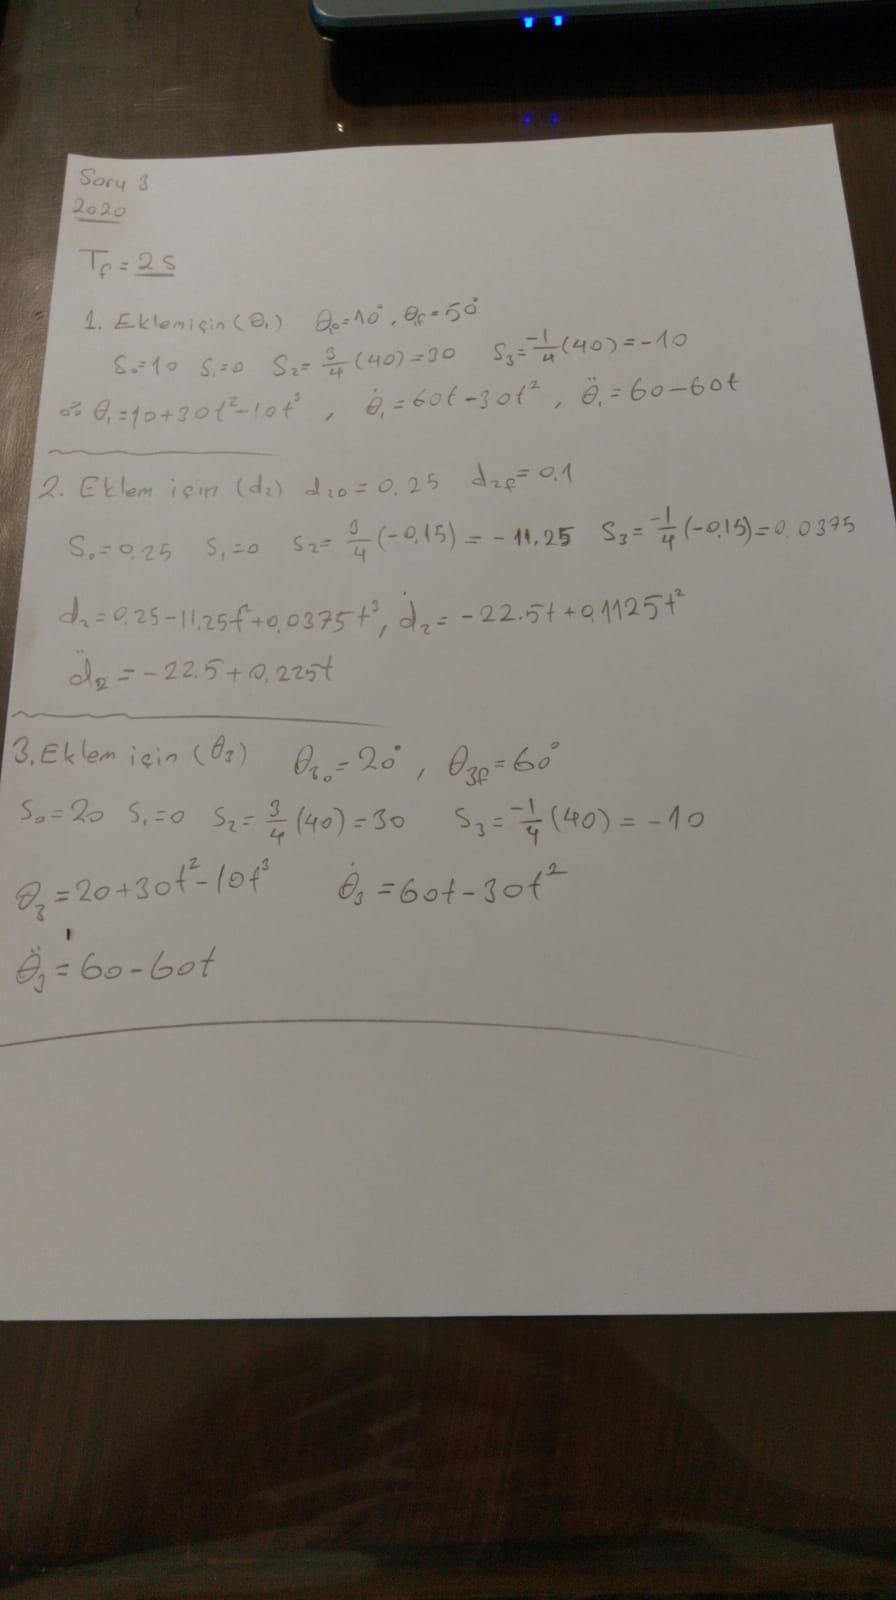 Soru 3
2020
T_f = 2s
1. Eklem için (θ₁) θ₀=10°, θ_f=50°
S₀=10 S₁=0 S₂=3/4(40)=30 S₃=-1/4(40)=-10
∴ θ₁=10+30t²-10t³, θ̇₁=60t-30t², θ̈₁=60-60t
2. Eklem için (d₂) d₂₀=0.25 d₂f=0.1
S₀=0.25 S₁=0 S₂=3/4(-0,15)=-11,25 S₃=-1/4(-0,15)=0.0375
d₂=0.25-11,25t²+0,0375t³, ḋ₂=-22.5t+0,1125t²
d̈₂=-22.5+0.225t
3. Eklem için (θ₃) θ₃₀=20°, θ₃f=60°
S₀=20 S₁=0 S₂=3/4(40)=30 S₃=-1/4(40)=-10
θ₃=20+30t²-10t³ θ̇₃=60t-30t²
θ̈₃=60-60t